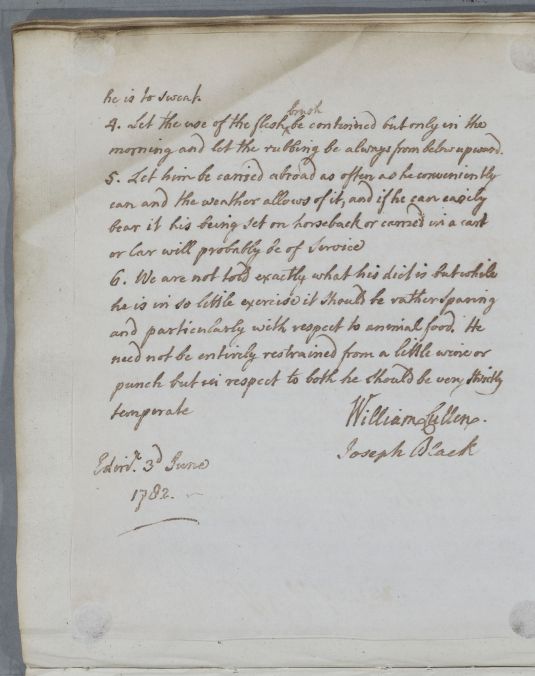 he is to sweat.
4. Let the use of the flesh brush be continued but only in the
morning and let the rubbing be always from below upward.
5. Let him be carried abroad as often as he conveniently
can and the weather allows of it, and if he can easily
bear it his being set on horseback or carried in a cart
or Car will probably be of Service
6. We are not told exactly what his diet is but while
he is in so little exercise it should be rather sparing
and particularly with respect to animal food. He
need not be entirely restrained from a little wine or
punch but in respect to both he should be very strictly
temperate
William Cullen.
Joseph Black
Edinr. 3d June
1782.